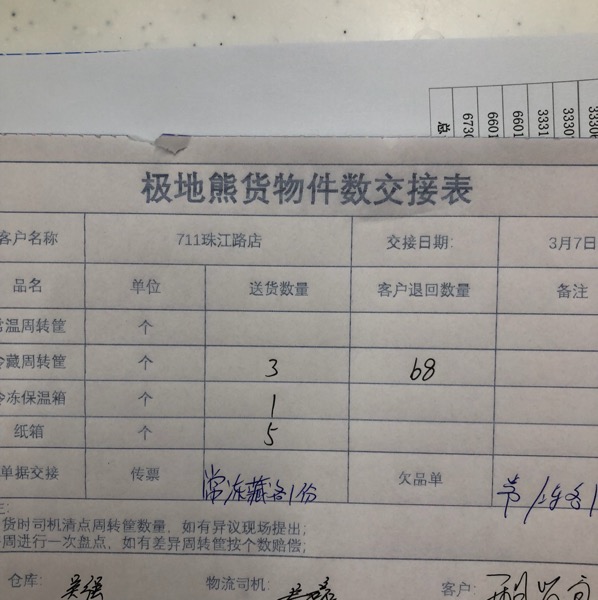 总
6730
6601
6601
3331
3330
3330
极地熊货物件数交接表
客户名称 711珠江路店 交接日期: 3月7日
品名 单位 送货数量 客户退回数量 备注
常温周转筐 个
冷藏周转筐 个 3 68
冷冻保温箱 个 1
纸箱 个 5
单据交接 传票 常冻藏各1份 欠品单
货时司机清点周转筐数量，如有异议现场提出;
周进行一次盘点，如有差异周转筐按个数赔偿;
仓库: 吴强 物流司机: 客户: